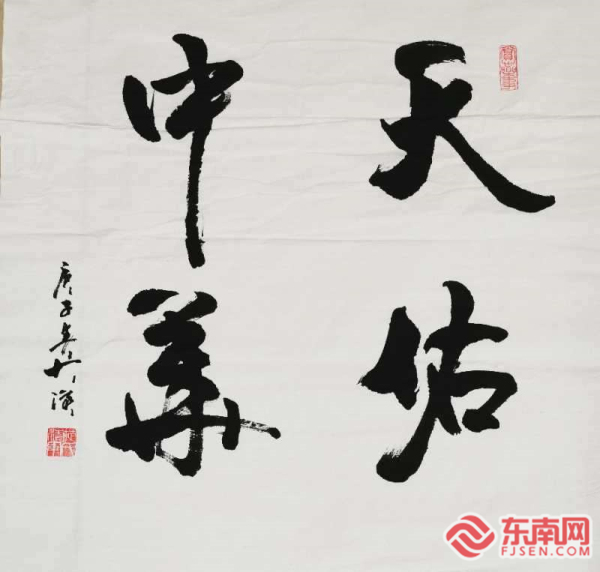 天佑
中華
庚子
东南网
FJSEN.COM